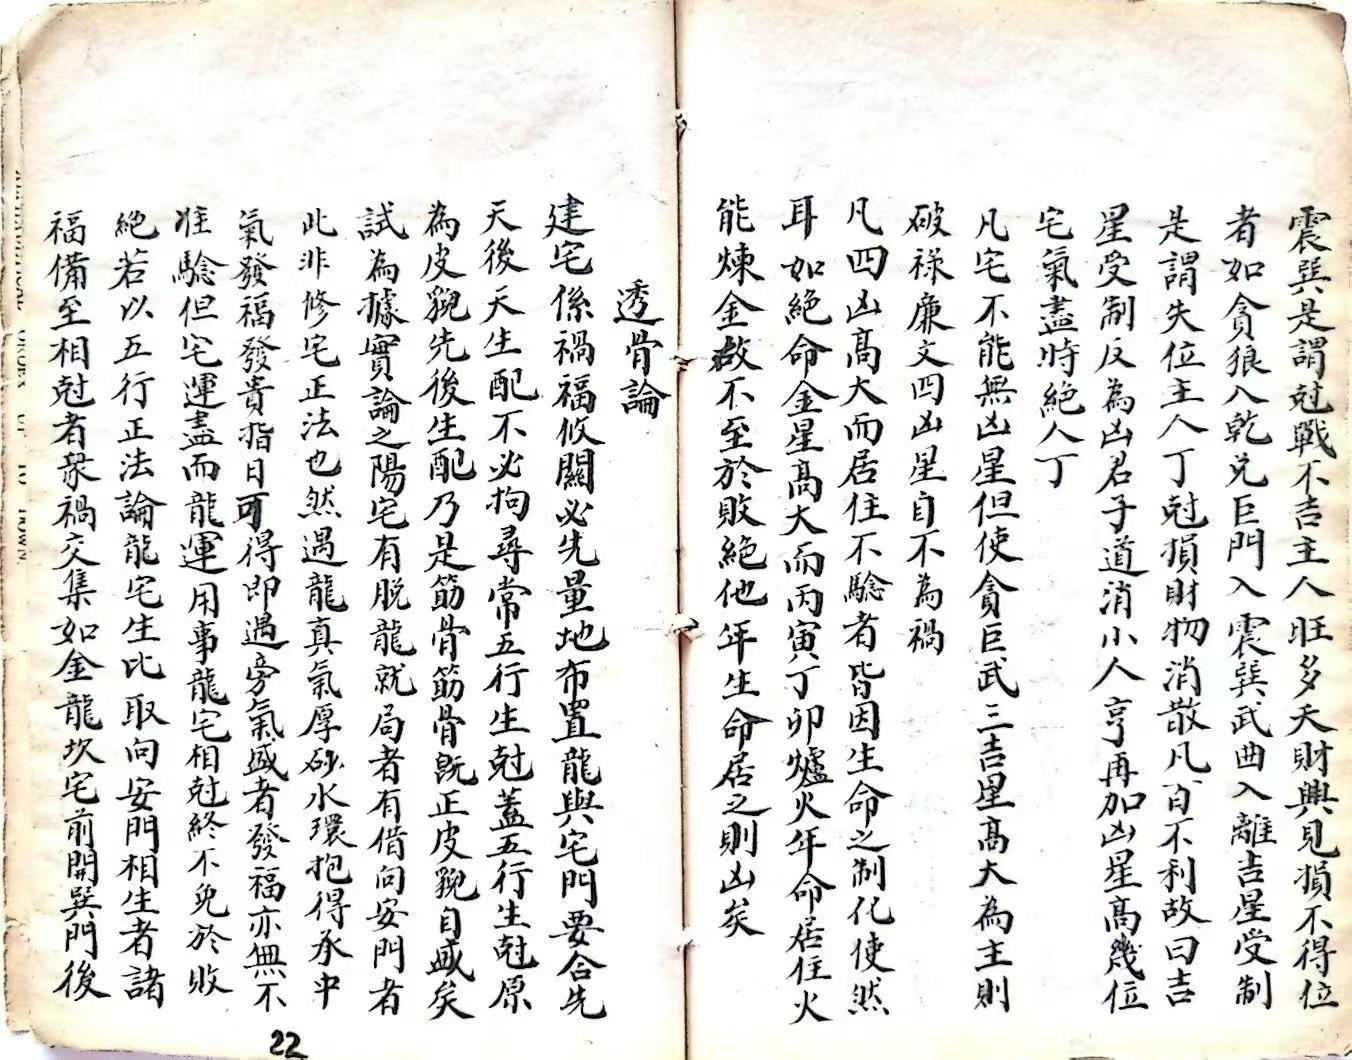 震巽是謂尅戰不吉主人旺多夭財興見損不得位
者如貪狼入乾兑巨門入震巽武曲入離吉星受制
是謂失位主人丁尅損財物消散凡百不利故曰吉
星受制反為凶君子道消小人亨再加凶星高幾位
宅氣盡時絕人丁
凡宅不能無凶星但使貪巨武三吉星高大為主則
破祿廉文四凶星自不為禍
凡四凶高大而居住不驗者皆因生命之制化使然
耳如絕命金星高大而丙寅丁卯爐火年命居住火
能煉金故不至於敗絕他年生命居之則凶矣
透骨論
建宅係禍福攸關必先量地布置龍與宅門要合先
天後天生配不必拘尋常五行生尅蓋五行生尅原
為皮貌先後生配乃是筋骨筋骨既正皮貌自盛矣
試為據實論之陽宅有脫龍就局者有借向安門者
此非修宅正法也然遇龍真氣厚砂水環抱得承中
氣發福發貴指日可得即遇旁氣盛者發福亦無不
准驗但宅運盡而龍運用事龍宅相尅終不免於敗
絕若以五行正法論龍宅生比取向安門相生者諸
福備至相尅者衆禍交集如金龍坎宅前開巽門後
22